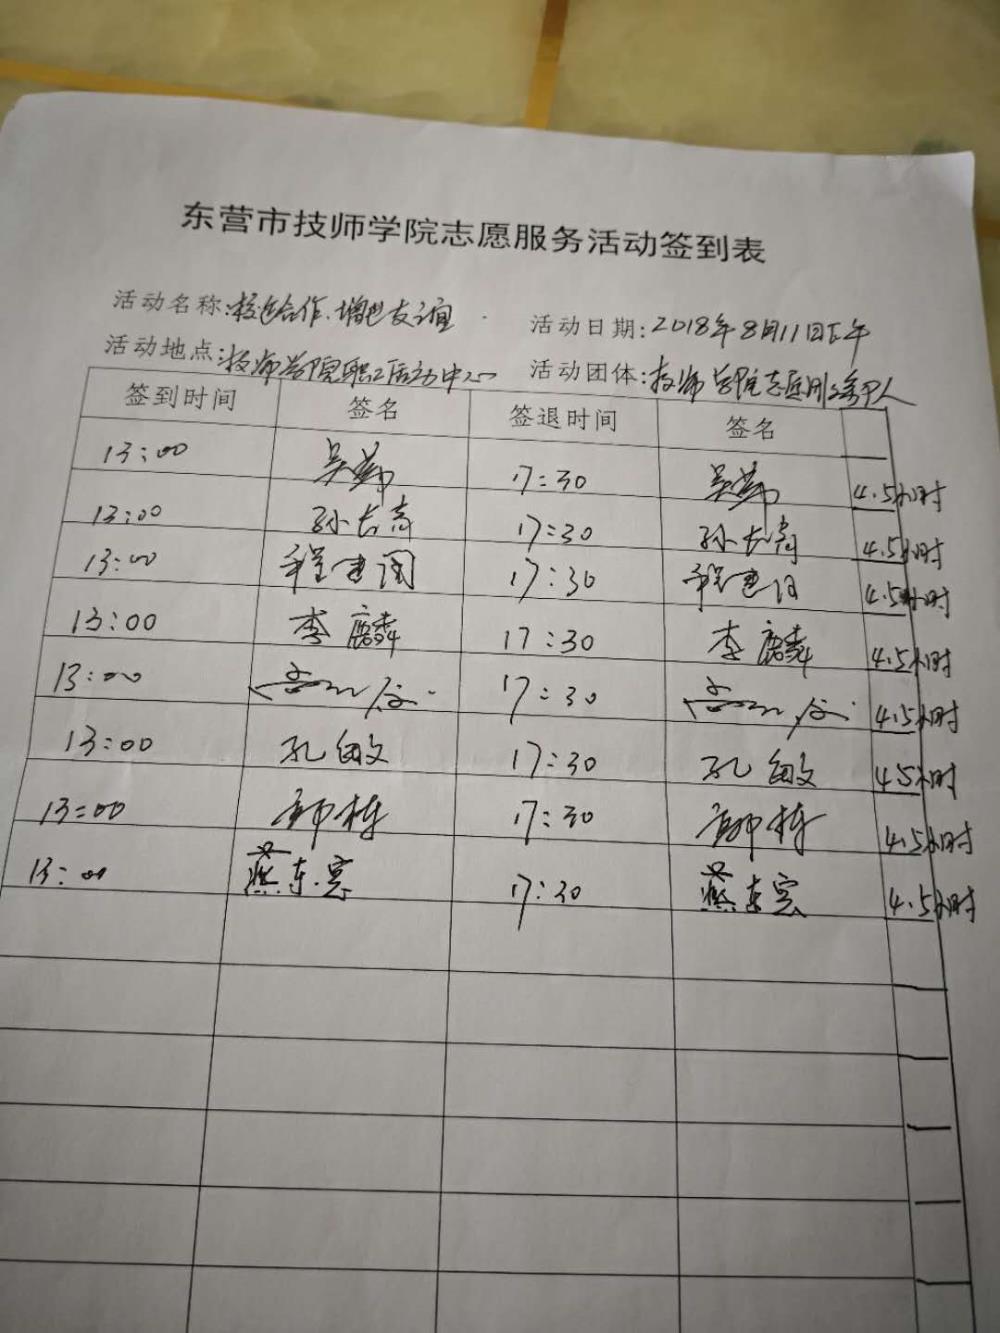 东营市技师学院志愿服务活动签到表
活动名称:校企合作、增进友谊 活动日期:2018年8月11日下午
活动地点:技师学院职工活动中心 活动团体:技师学院志愿服务
签到时间 签名 签退时间 签名
13:00 吴勤 17:30 吴勤 4.5小时
13:00 孙长青 17:30 孙长青 4.5小时
13:00 程建国 17:30 程建国 4.5小时
13:00 李麟 17:30 李麟 4.5小时
13:00 17:30 4.5小时
13:00 孔敏 17:30 孔敏 4.5小时
13:00 17:30 4.5小时
13:00 蔡东宾 17:30 蔡东宾 4.5小时